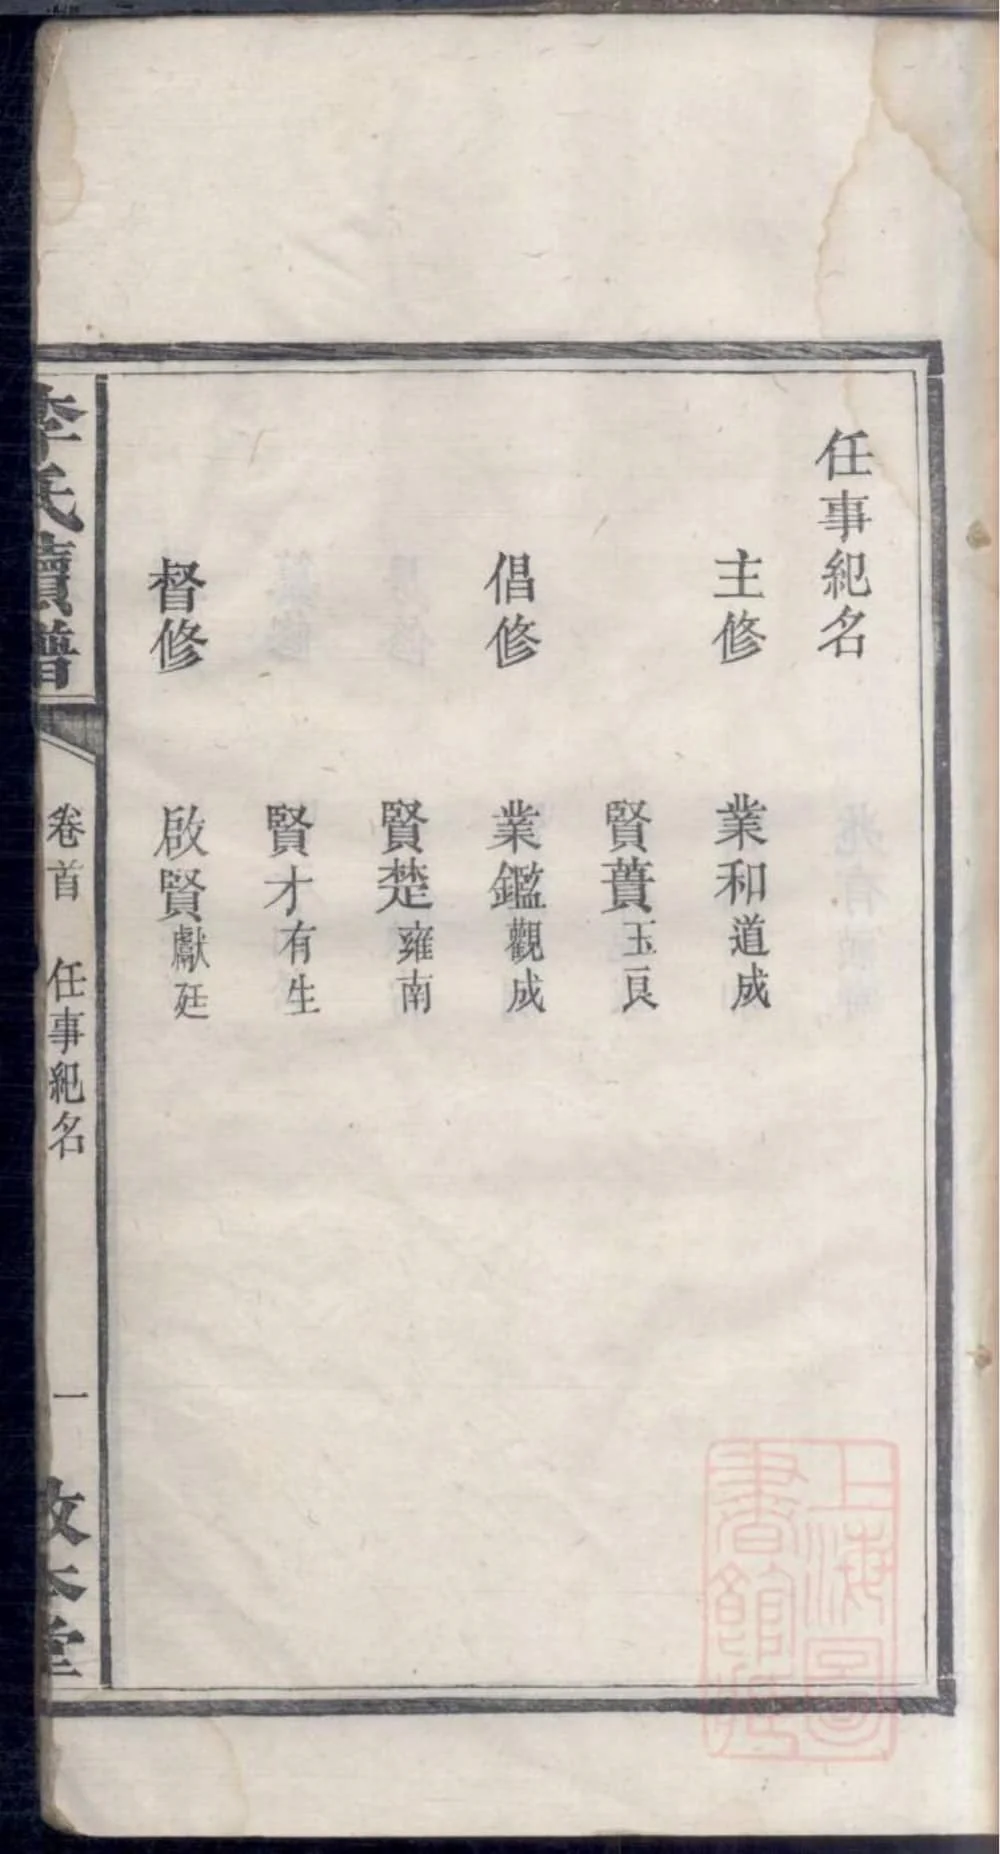 任事紀名
主修
業和道成
賢蕡玉良
倡修
業鑑觀成
賢楚雍南
賢才有生
督修
啟賢獻廷
李氏續譜
卷首 任事紀名
一
敦本堂
上海圖書館藏